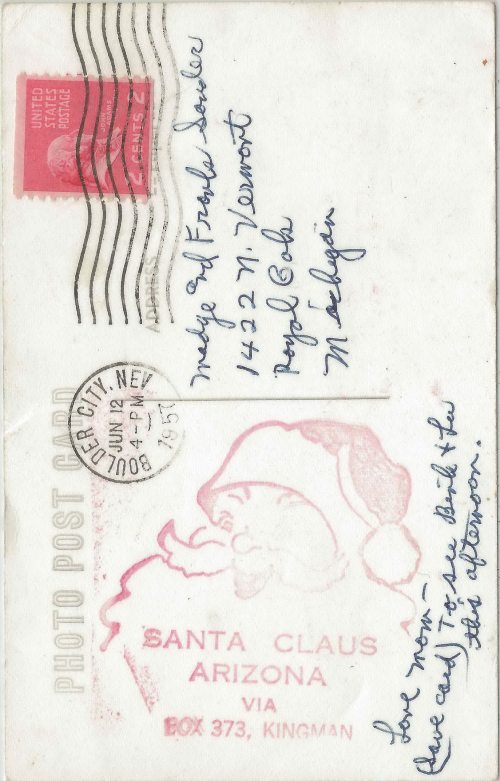 PHOTO POST CARD
ADDRESS
UNITED
STATES
POSTAGE
JOHN
ADAMS
2 CENTS 2
BOULDER CITY, NEV
JUN 12
4-PM
1957
SANTA CLAUS
ARIZONA
VIA
BOX 373, KINGMAN
Madge and Frank
1422 N. Vermont
Royal Oak
Michigan
Love Mom-
(Save card) To see Bink + Lee
this afternoon.